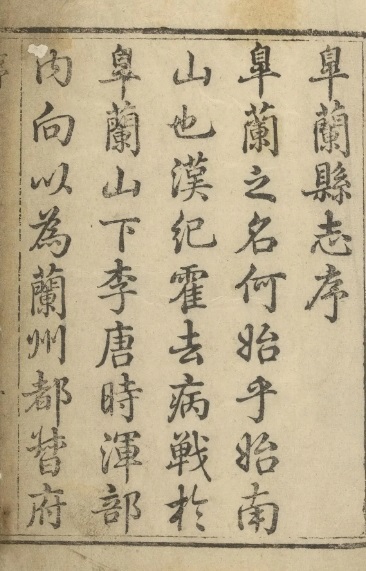 皐蘭縣志序
皐蘭之名何始乎始南
山也漢紀霍去病戰於
皐蘭山下李唐時渾部
內向以為蘭州都督府